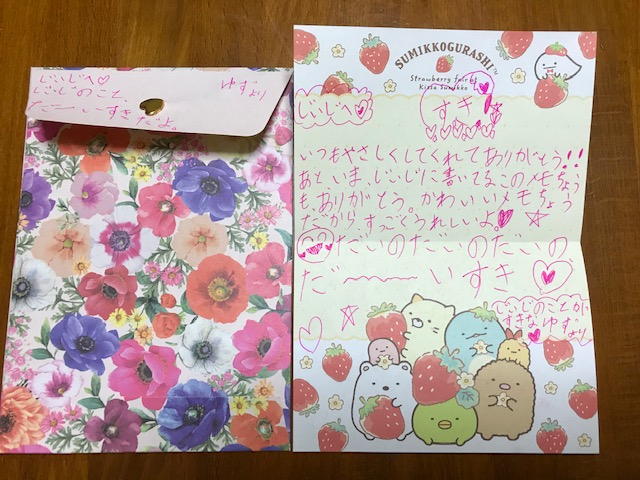 じいじへ♡
ゆずより
じいじのこと、
だーいすきだよ。
SUMIKKOGURASHI™
Strawberry fair of
Kissa Sumikko
じいじへ♡
すき
いつもやさしくしてくれてありがとう!!
あといま、じいじに書いてるこのメモちょう
もありがとう。かわいいメモちょう
だから、すっごくうれしいよ。♡ ☆
だいのだいのだいの、
だ〜〜〜いすき♡
じいじのことが
すきなゆずより